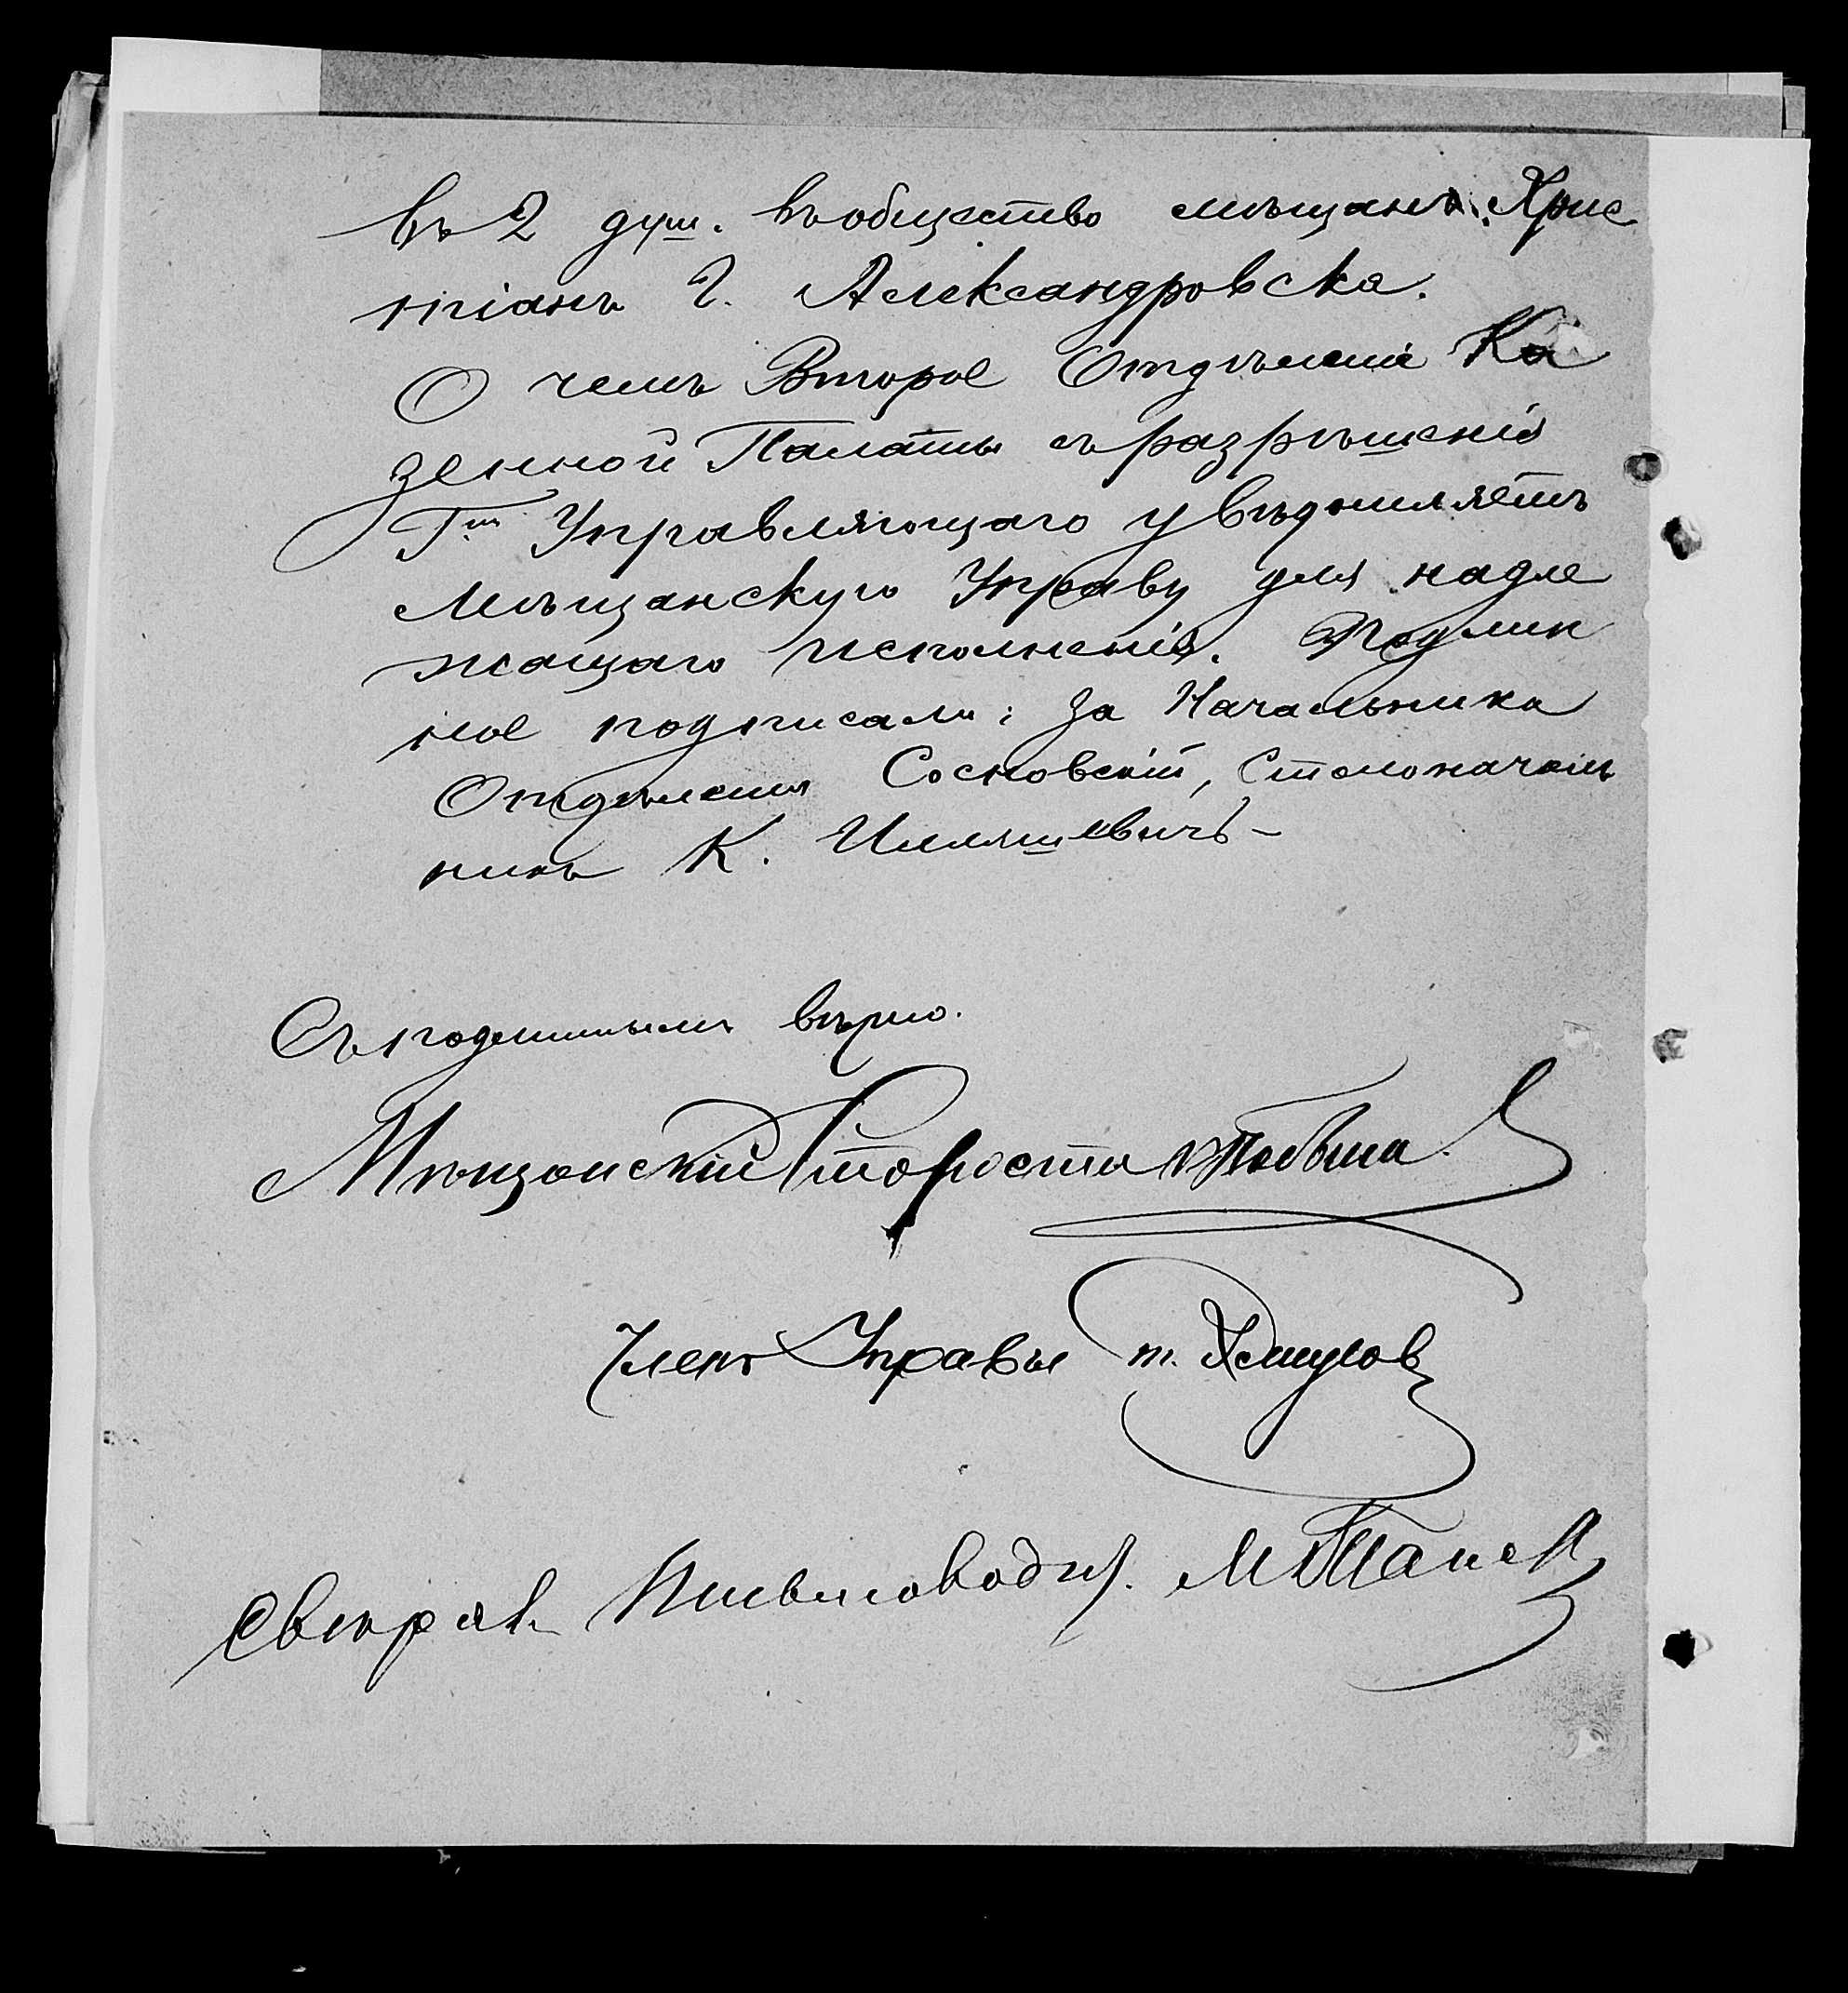 въ 2 душ. въ общество мѣщанъ Хрис
тіанъ г. Александровска.
О чемъ Второе Отдѣленіе Ка
зенной Палаты съ разрѣшенія
Гна Управляющаго увѣдомляетъ
Мѣщанскую Управу для надле
жащаго исполненія. Подлин
ное подписали: За Начальника
Отдѣленія Сосновскій, Столоначаль
никъ К. Илляшевичъ-
Съ подлиннымъ вѣрно.
Мѣщанскій Староста
Членъ Управы
свѣрялъ Письмоводит.